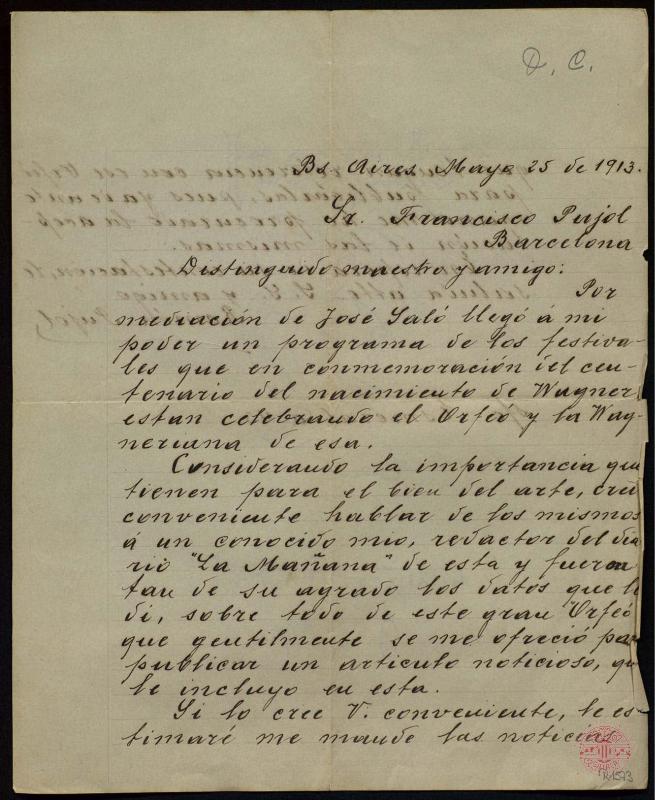 D. C.
Bs Aires Mayo 25 de 1913.
Sr. Francisco Pujol
Barcelona
Distinguido maestro y amigo:
Por
mediación de José Saló llegó á mi
poder un programa de los festiva-
les que en conmemoración del cen-
tenario del nacimiento de Wagner
estan celebrando el Orfeó y la Wag-
neriana de esa.
Considerando la importancia que
tienen para el bien del arte, creí
conveniente hablar de los mismos
á un conocido mio, redactor del dia
rio "La Mañana" de esta y fueron
tan de su agrado los datos que le
di, sobre todo de este gran Orfeó
que gentilmente se me ofreció par
publicar un articulo noticioso, qu
le incluyo en esta.
Si lo cree V. conveniente, le es-
timaré me mande las noticias
R.1573